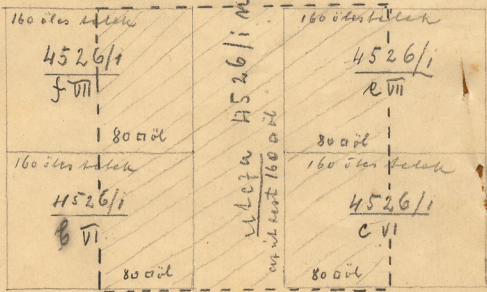 160 öles telek
4526/i
f VII
80 □öl
160 öles telek
4526/i
VI
80 □öl
utcza 4526/i n
160 □öl
160 öles telek
4526/i
e VII
80 □öl
160 öles telek
4526/i
c VI
80 □öl